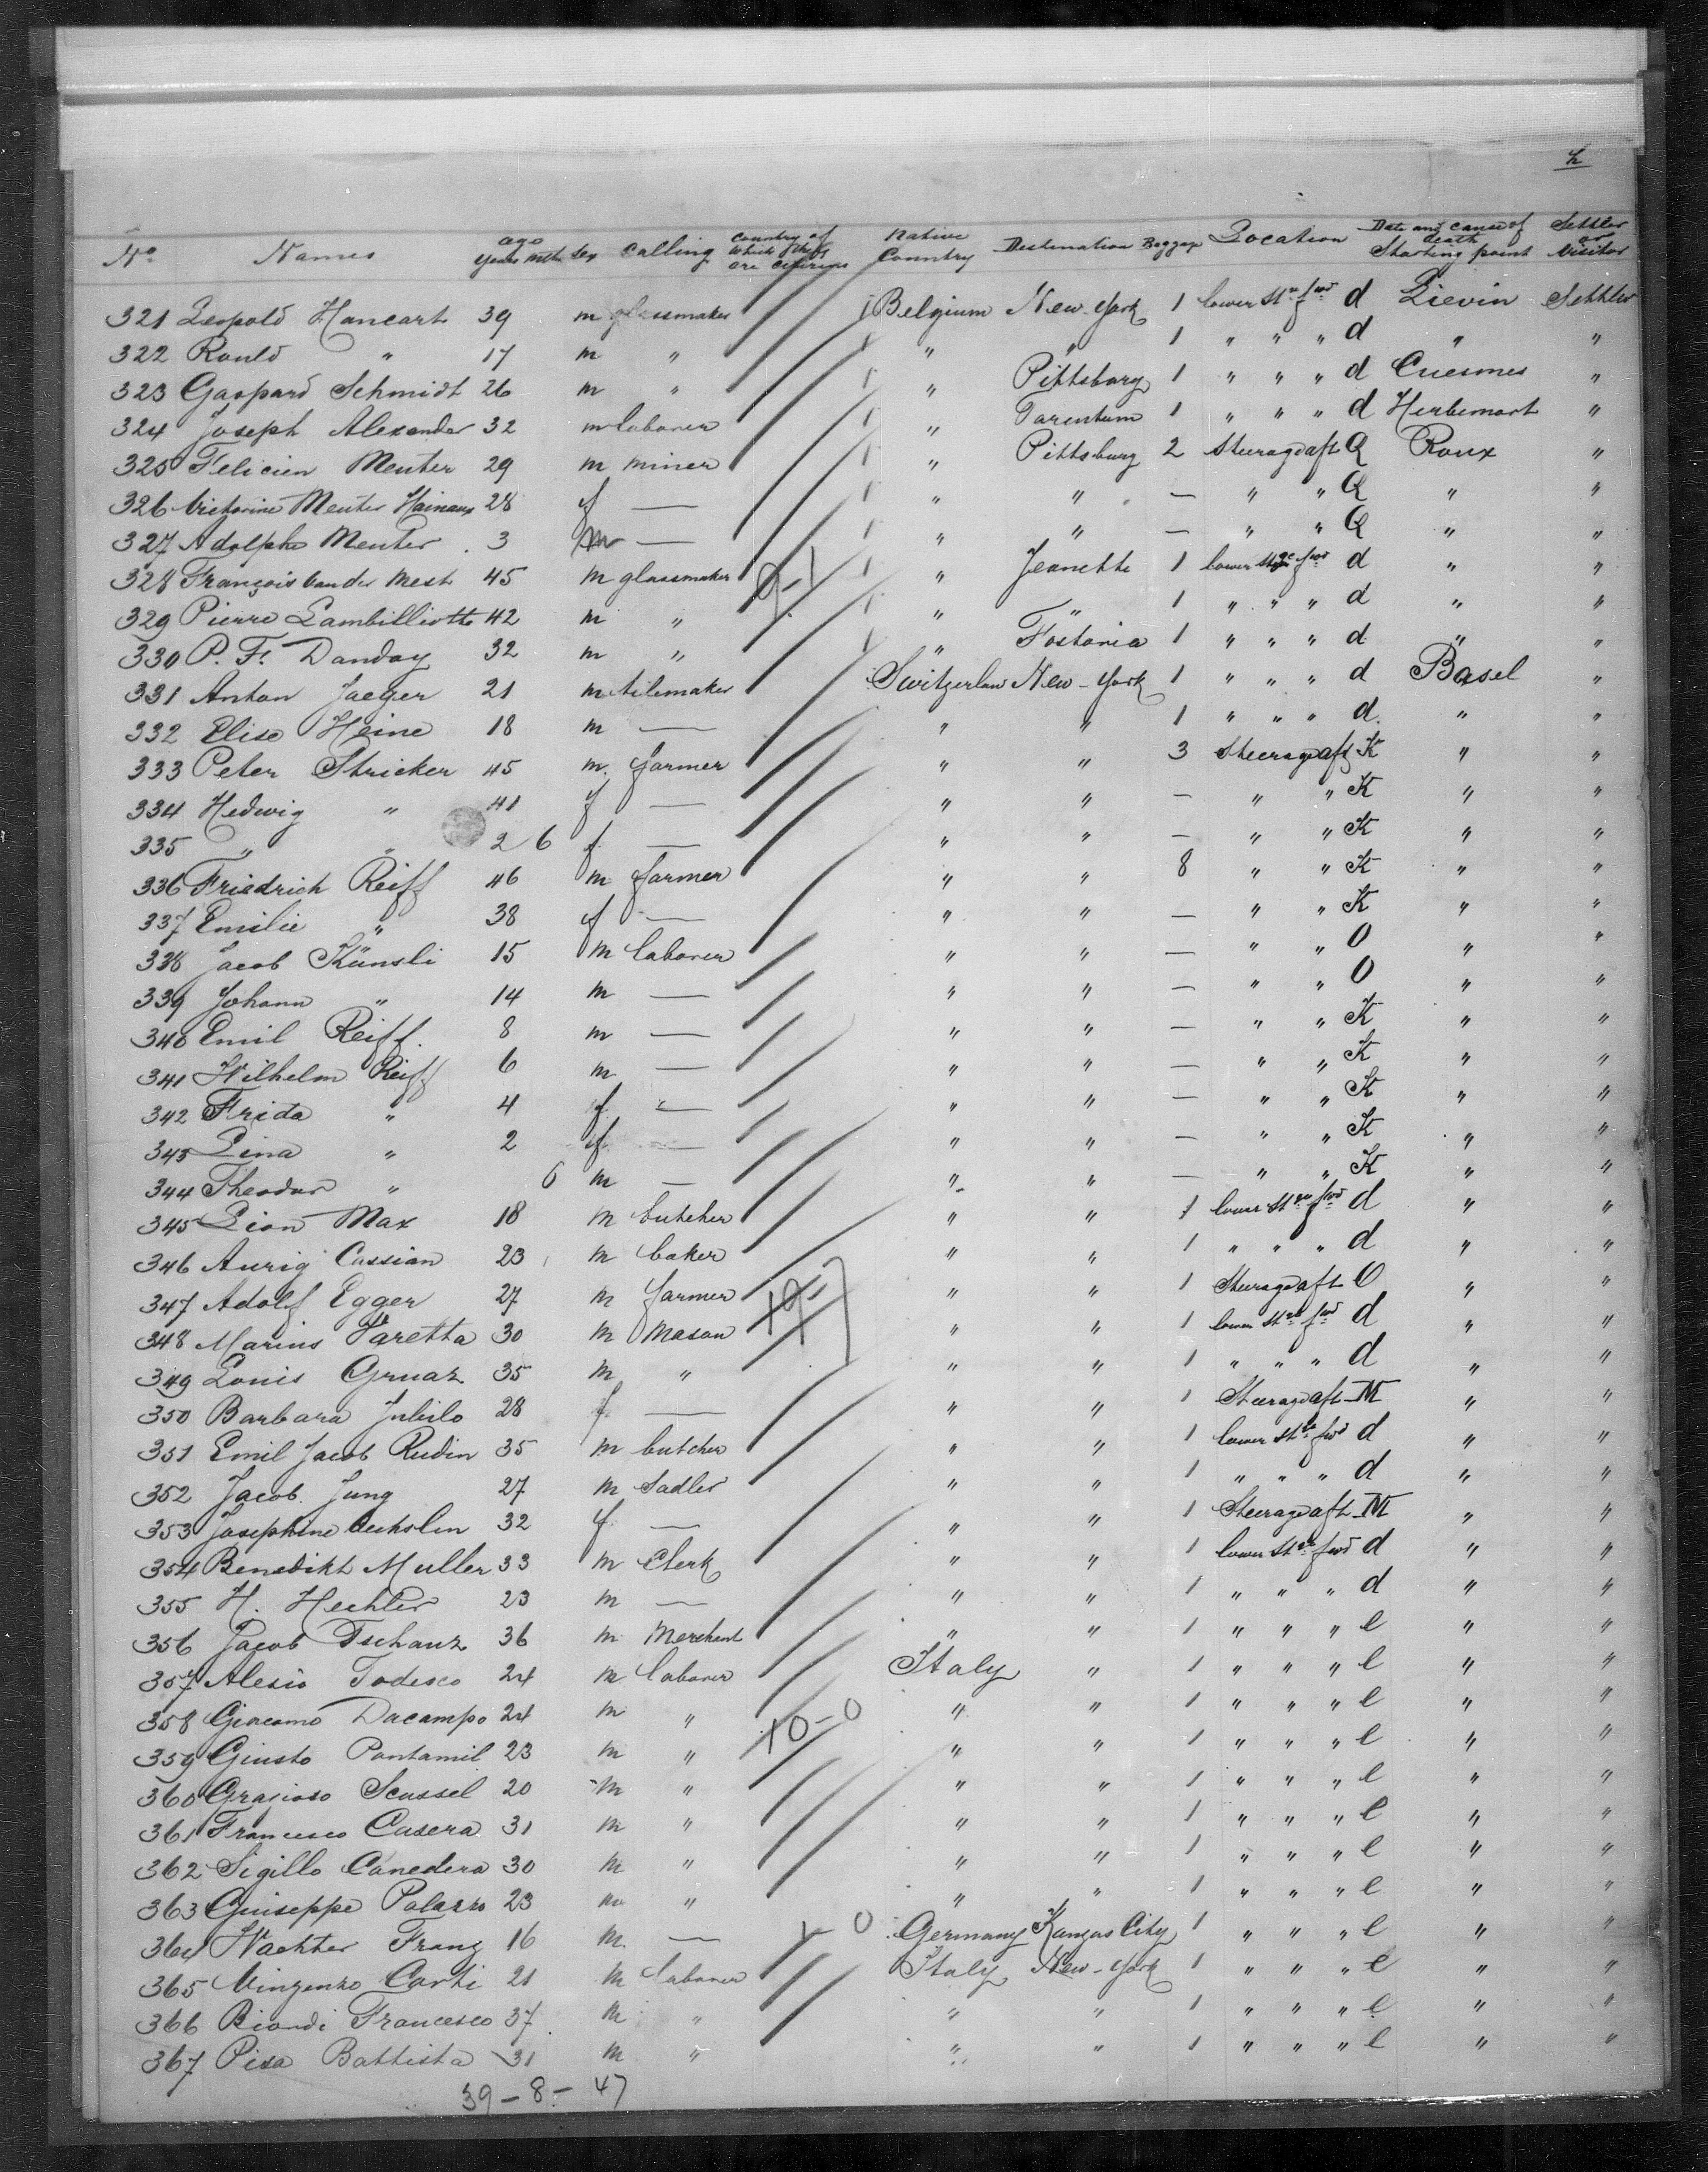 h
No Names age years mth sex calling Country of which they are citizens Native Country Destination Baggage Location Date and cause of death Starting point Settler or Visitor
321 Leopold Hancart 39 m glassmaker Belgium New-York 1 lower stge fwd d Lievin Settler
322 Rould " 17 m " " " 1 " " " d " "
323 Gaspard Schmidt 26 m " " Pittsburg 1 " " " d Cuesmes "
324 Joseph Alexander 32 m laborer " Tarentum 1 " " " d Herbemont "
325 Felicien Menter 29 m miner " Pittsburg 2 Steerage aft Q Roux "
326 Victorine Menter Hainaux 28 f — " " — " " Q " "
327 Adolphe Menter 3 m — " " — " " Q " "
328 François Van der Mest 45 m glassmaker 9-1 " Jeanette 1 lower stge fwd d " "
329 Pierre Lambilliotte 42 m " " " 1 " " " d " "
330 P. F. Danday 32 m " " Fostoria 1 " " " d " "
331 Anton Jaeger 21 m tilemaker Switzerlan New-York 1 " " " d Basel "
332 Elise Heine 18 m — " " 1 " " " d. " "
333 Peter Stricker 45 m. farmer " " 3 Steerage aft K " "
334 Hedwig " 41 f — " " — " " K " "
335 " " 2 6 f. — " " — " " K " "
336 Friedrich Reiff 46 m farmer " " 8 " " K " "
337 Emilie " 38 f — " " — " " K " "
338 Jacob Künsli 15 m laborer " " — " " O " "
339 Johann " 14 m — " " — " " O " "
340 Emil Reiff. 8 m — " " — " " K " "
341 Wilhelm Reiff 6 m — " " — " " K " "
342 Frida " 4 f — " " — " " K " "
343 Lina " 2 f — " " — " " K " "
344 Theodor " 6 m — " " — " " K " "
345 Lion Max 18 m butcher " " 1 lower stge fwd d " "
346 Aurig Cassian 23 m baker " " 1 " " " d " "
347 Adolf Egger 27 m farmer " " 1 Steerage aft O " "
348 Marius Varetta 30 m Mason " " 1 lower stge fwd d " "
349 Louis Gruaz 35 m " " " 1 " " " d " "
350 Barbara Jubilo 28 f — " " 1 Steerage aft M " "
351 Emil Jacob Rudin 35 m butcher " " 1 lower stge fwd d " "
352 Jacob Jung 27 m Sadler " " 1 " " " d " "
353 Josephine Oechslin 32 f. — " " 1 Steerage aft M " "
354 Benedikt Muller 33 m Clerk " " 1 lower stge fwd d " "
355 H. Hechler 23 m — " " 1 " " " d " "
356 Jacob Tschanz 36 m Merchant " " 1 " " " e " "
357 Alesio Todesco 24 m laborer Italy " 1 " " " e " "
358 Giacomo Dacampo 24 m " 10-0 " " 1 " " " e " "
359 Giusto Pontamil 23 m " " " 1 " " " e " "
360 Grasioso Scussel 20 m " " " 1 " " " e " "
361 Francesco Casera 31 m " " " 1 " " " e " "
362 Sigillo Canedera 30 m " " " 1 " " " e " "
363 Guiseppe Palazzo 23 m " " " 1 " " " e " "
364 Wachter Franz 16 m. — 1-0 Germany Kansas City 1 " " " e " "
365 Vinzenzo Corti 21 m laborer Italy New-York 1 " " " e " "
366 Biondi Francesco 37 m " " " 1 " " " e " "
367 Pisa Battista 31 m " " " 1 " " " e " "
39-8- 47